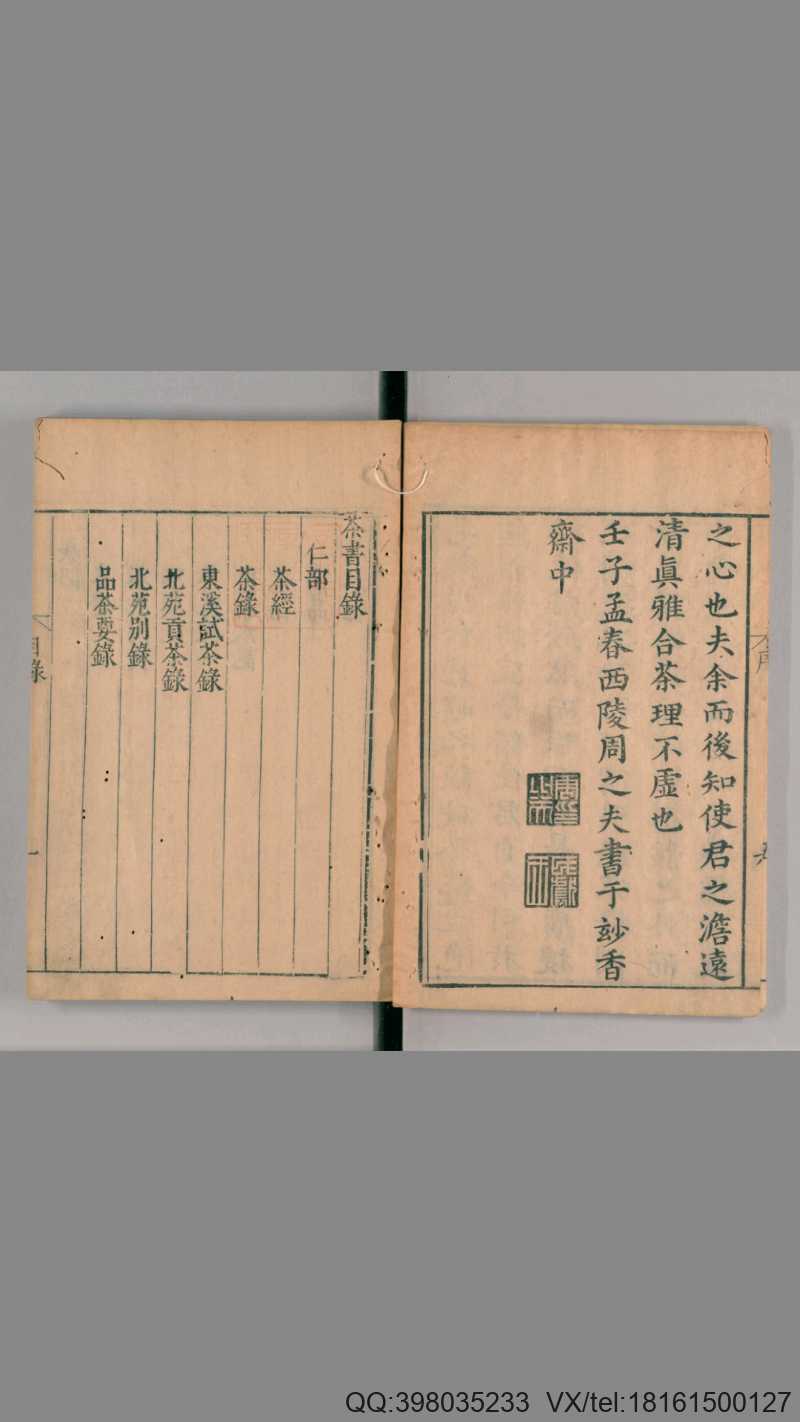 之心也夫余而後知使君之澹遠
清眞雅合茶理不虛也
壬子孟春西陵周之夫書于玅香
齋中
茶書目錄
仁部
茶經
茶錄
東溪試茶錄
北苑貢茶錄
北苑別錄
品茶要錄
目錄
一
QQ:398035233 VX/tel:18161500127